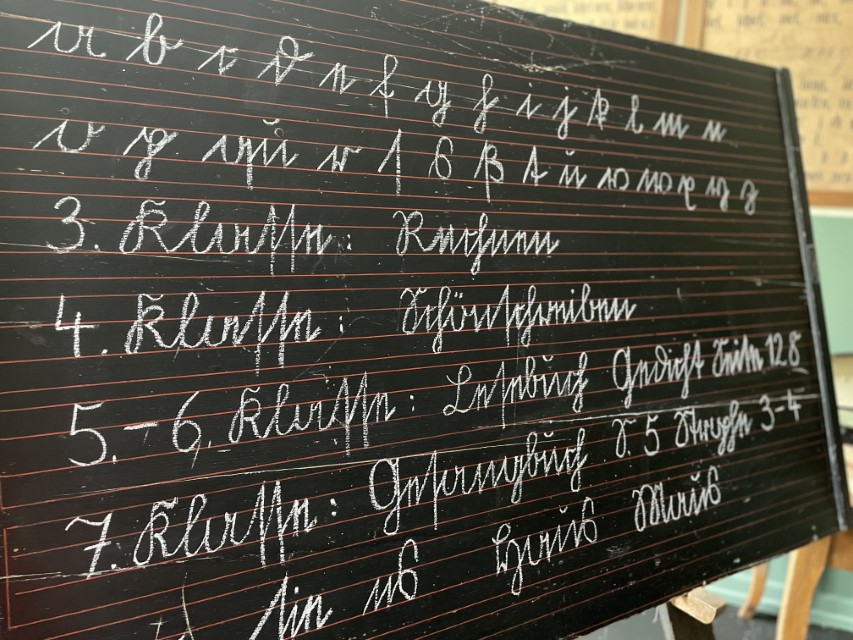 a b c d e f g h i j k l m n
o p qu r ſ s ß t u v w x y z
3. Klasse: Rechnen
4. Klasse: Schönschreiben
5.-6. Klasse: Lesebuch Gedicht Seite 128
7. Klasse: Gesangbuch S. 5 Strophe 3-4
Haus Maus